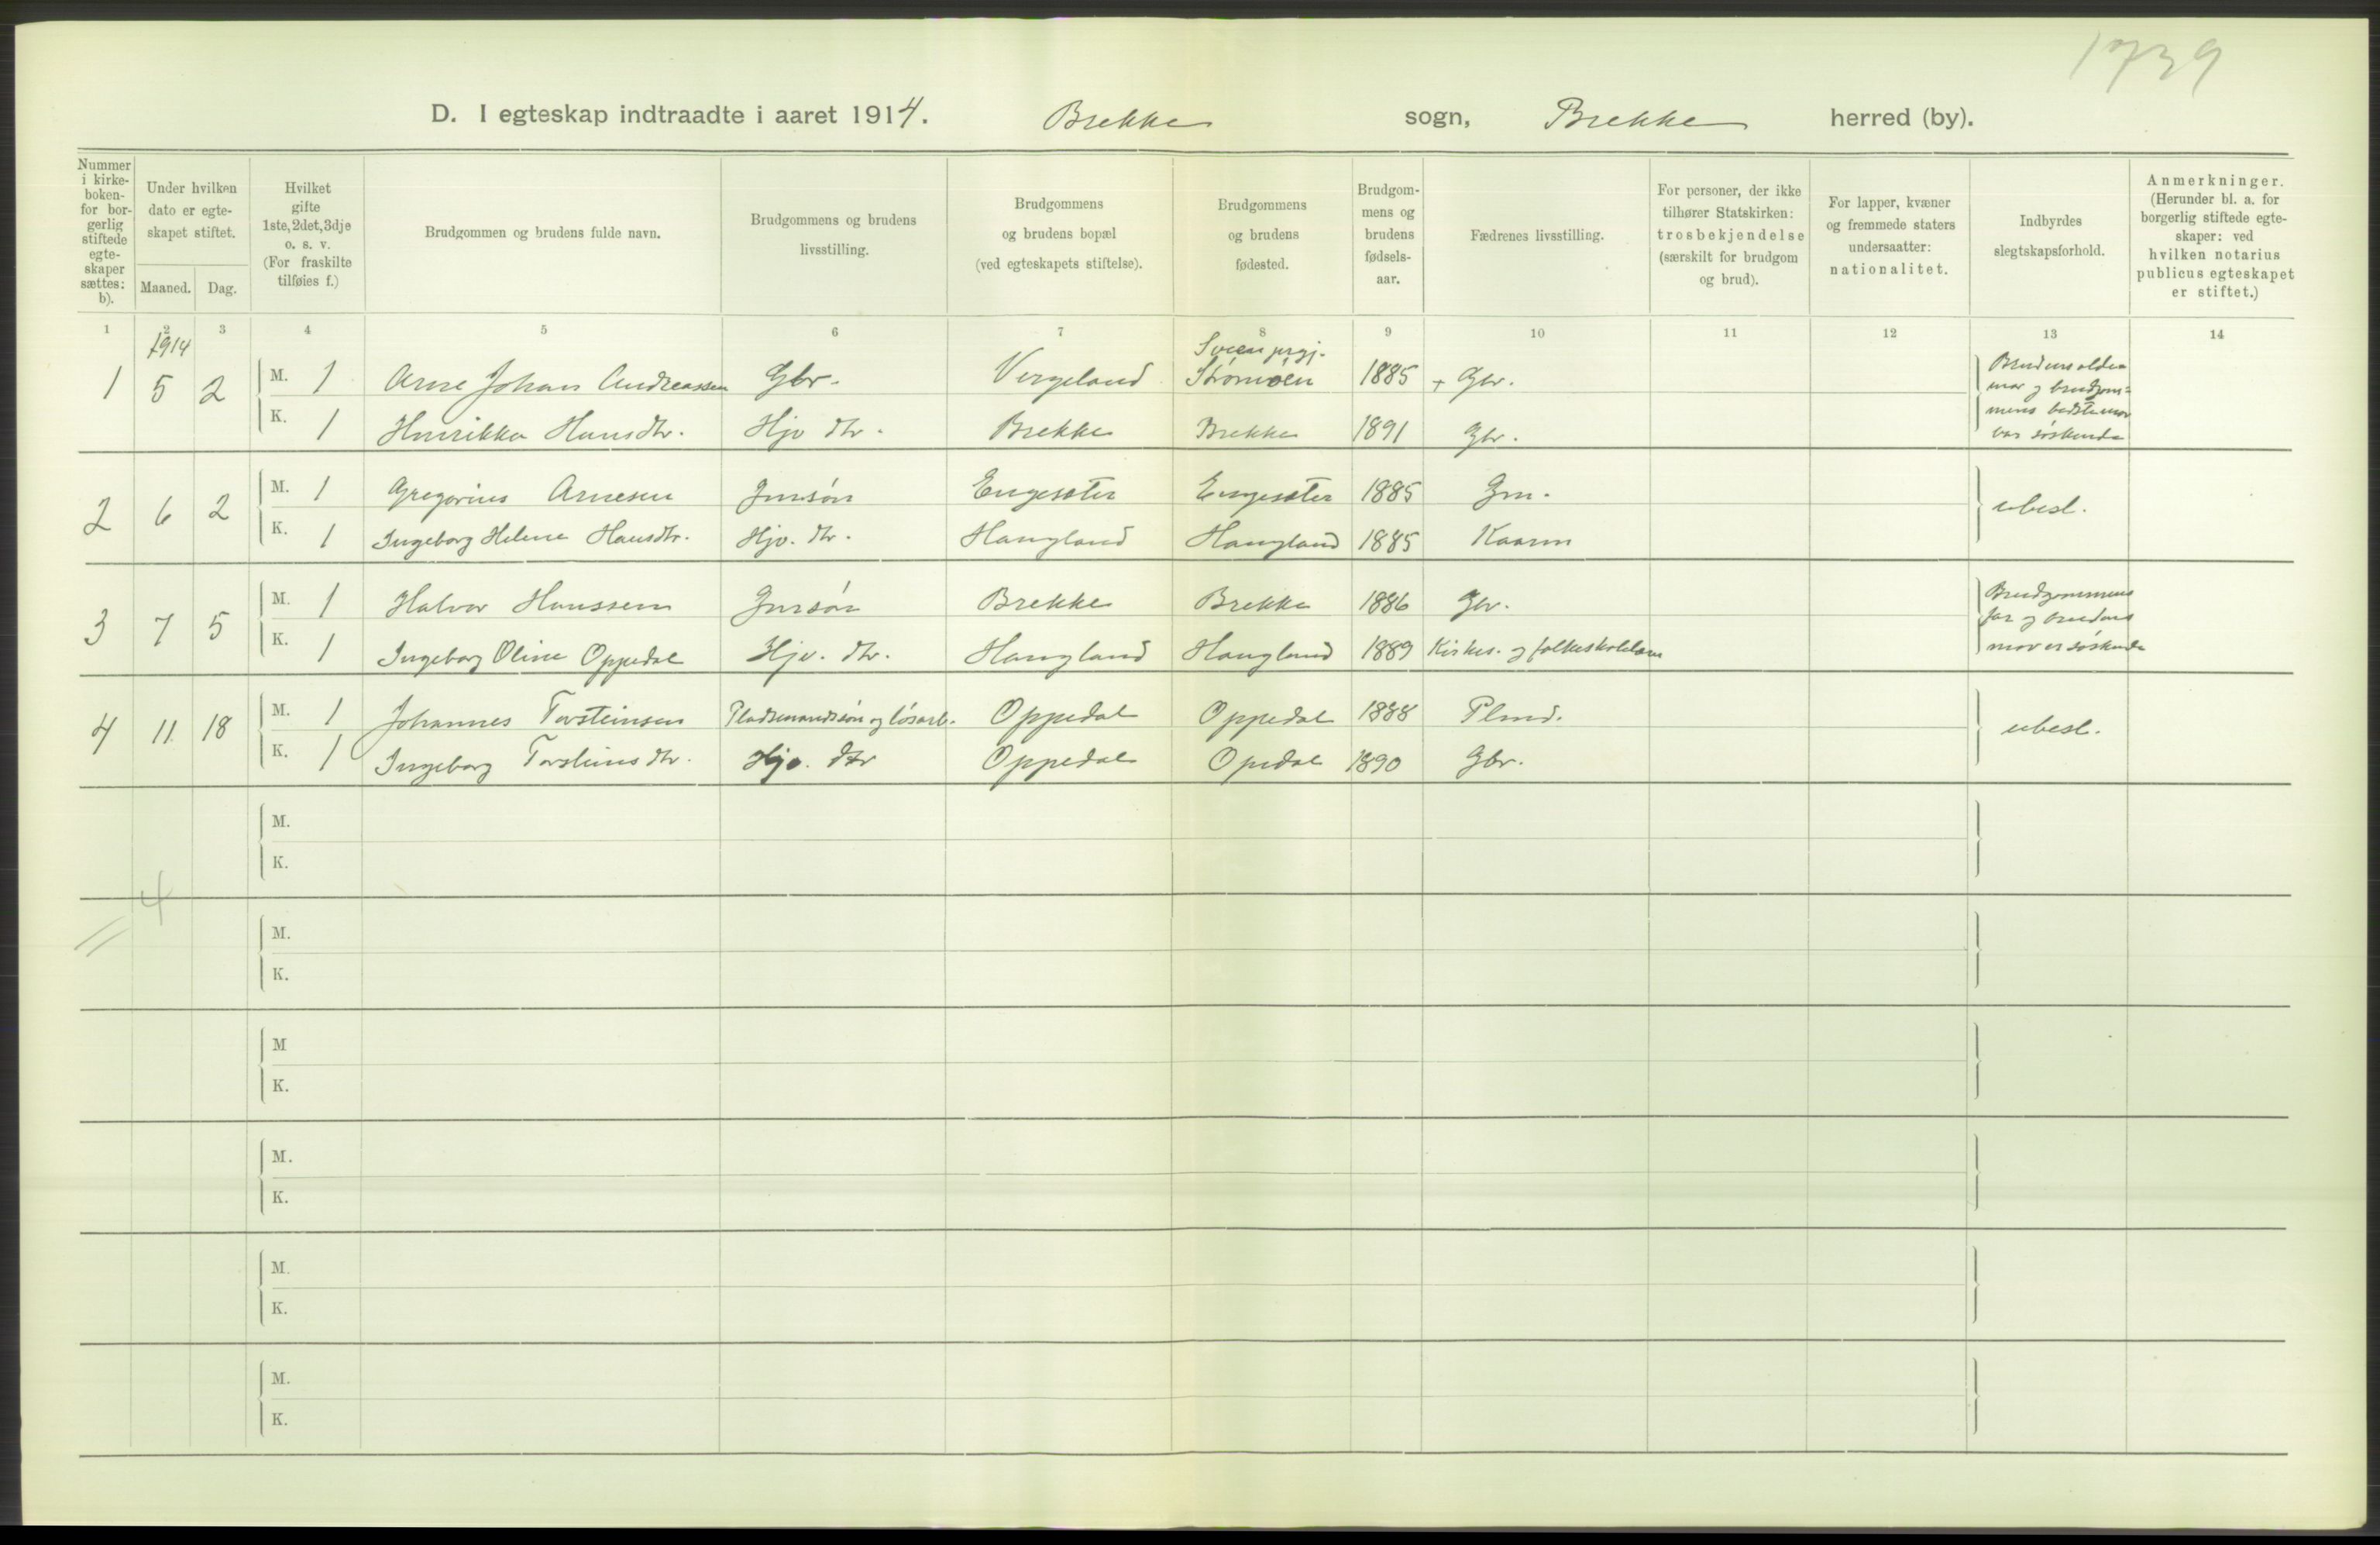 1739
D. I egteskap indtraadte i aaret 1914. Brekke sogn, Brekke herred (by).
Nummer i kirke-boken- for bor-gerlig stiftede egte-skaper sættes: b).
Under hvilken dato er egte-skapet stiftet.
Maaned. Dag.
Hvilket gifte 1ste, 2det, 3dje o. s. v. (For fraskilte tilføies f.)
Brudgommen og brudens fulde navn.
Brudgommens og brudens livsstilling.
Brudgommens og brudens bopæl (ved egteskapets stiftelse).
Brudgommens og brudens fødested.
Brudgom-mens og brudens fødsels-aar.
Fædrenes livsstilling.
For personer, der ikke tilhører Statskirken: trosbekjendelse (særskilt for brudgom og brud).
For lapper, kvæner og fremmede staters undersaatter: nationalitet.
Indbyrdes slegtskapsforhold.
Anmerkninger. (Herunder bl. a. for borgerlig stiftede egte-skaper: ved hvilken notarius publicus egteskapet er stiftet.)
1 2 3 4 5 6 7 8 9 10 11 12 13 14
1914
1 5 2 M. 1 Arne Johan Andreassen Gbr. Vergeland prgj. Strømøen 1885 + Gbr.
K. 1 Henrikka Hansdtr. Hjv dtr. Brekke Brekke 1891 Gbr.
Brudens olde-
mor og brudgom=
mens bedstemor
var søskende
2 6 2 M. 1 Gregorius Arnesen Gmsøn Engesæter Engesæter 1885 Gm.
K. 1 Ingeborg Helene Hansdtr. Hjv. dtr. Haugland Haugland 1885 Kaarm
ubesl.
3 7 5 M. 1 Halvor Hanssen Gmsøn Brekke Brekke 1886 Gbr.
K. 1 Ingeborg Oline Oppedal Hjv. dtr. Haugland Haugland 1889 Kirkes. og folkeskolelær
Brudgommens
far og brudens
mor er søskende
4 11 18 M. 1 Johannes Torsteinsen Pladsmandssøn og løsarb. Oppedal Oppedal 1888 Plmd.
K. 1 Ingeborg Torsteinsdtr. Hjv. dtr Oppedal Opedal 1890 Gbr.
ubesl.
M.
K.
4
M.
K.
M
K.
M.
K.
M.
K.
M.
K.